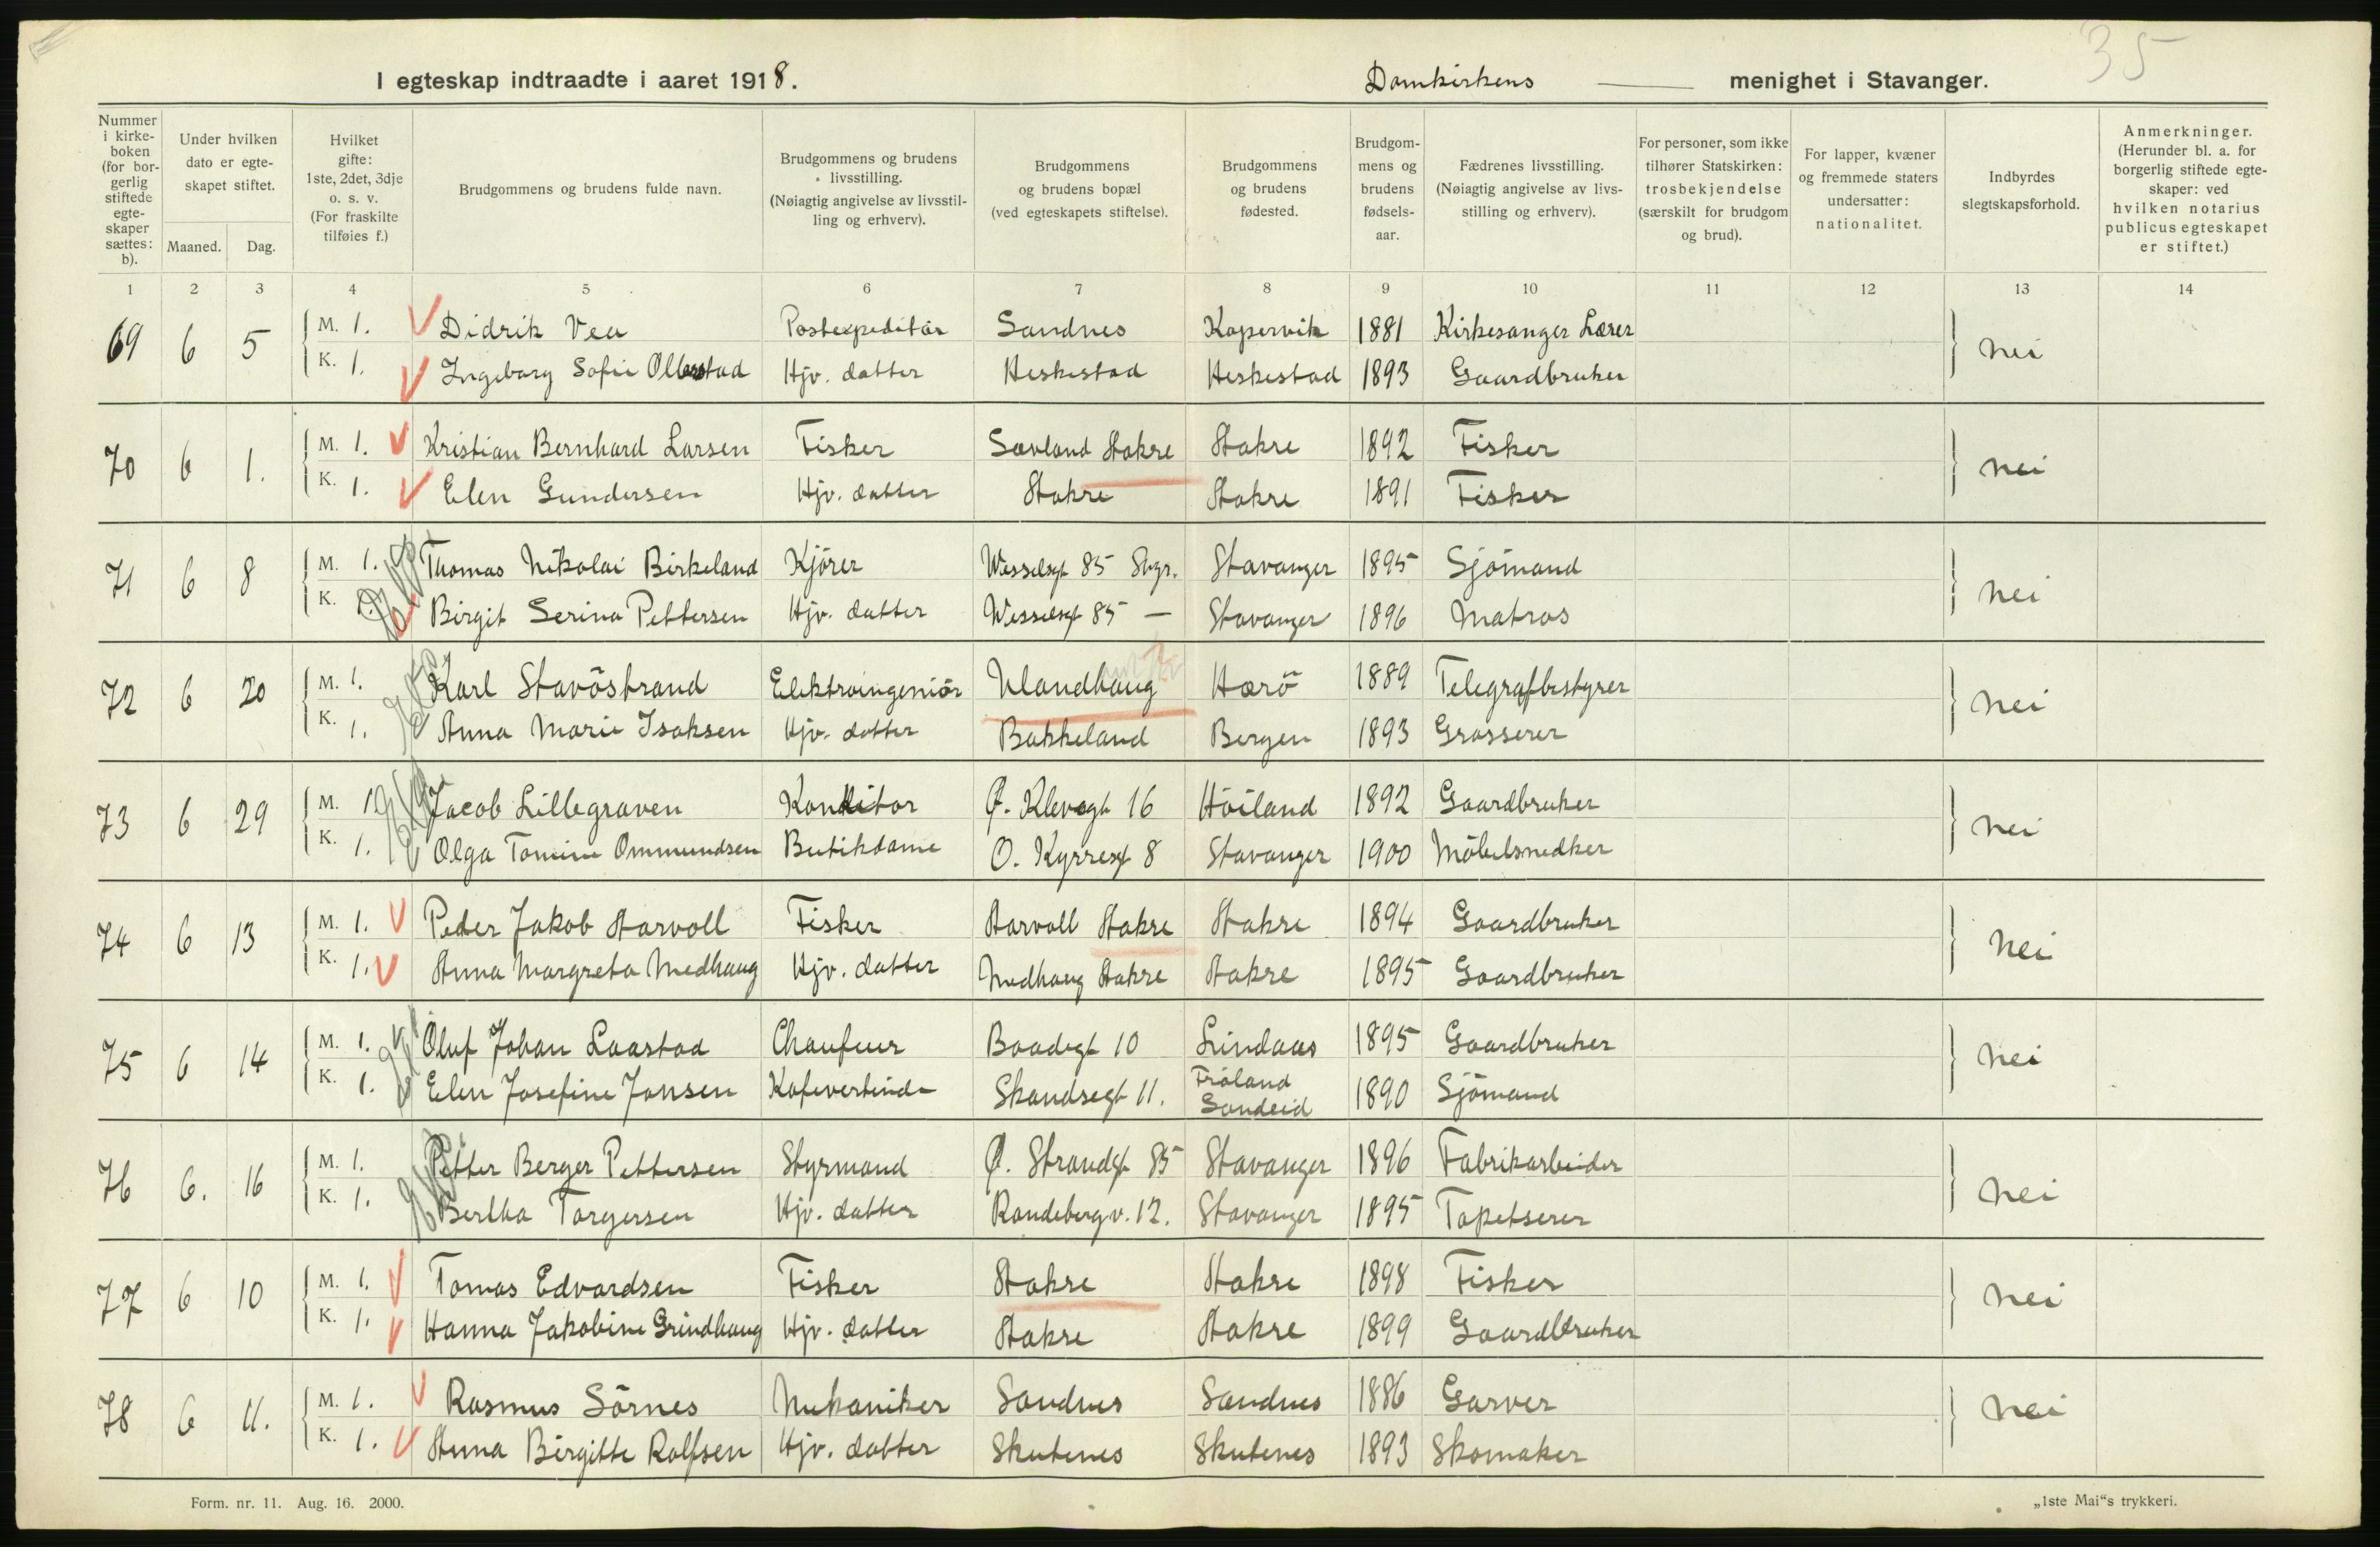 35
I egteskap indtraadte i aaret 1918. Domkirkens menighet i Stavanger.
Nummer i kirke-boken (for bor-gerlig stiftede egte-skaper sættes: b).
Under hvilken dato er egte-skapet stiftet.
Maaned. Dag.
Hvilket gifte: 1ste, 2det, 3dje o. s. v. (For fraskilte tilføies f.)
Brudgommens og brudens fulde navn.
Brudgommens og brudens livsstilling. (Nøiagtig angivelse av livsstil-ling og erhverv).
Brudgommens og brudens bopæl (ved egteskapets stiftelse).
Brudgommens og brudens fødested.
Brudgom-mens og brudens fødsels-aar.
Fædrenes livsstilling. (Nøiagtig angivelse av livs-stilling og erhverv).
For personer, som ikke tilhører Statskirken: trosbekjendelse (særskilt for brudgom og brud).
For lapper, kvæner og fremmede staters undersatter: nationalitet.
Indbyrdes slegtskapsforhold.
Anmerkninger. (Herunder bl. a. for borgerlig stiftede egte-skaper: ved hvilken notarius publicus egteskapet er stiftet.)
1 2 3 4 5 6 7 8 9 10 11 12 13 14
69 6 5 M. 1. Didrik Vea Postexpeditör Sandnes Kopervik 1881 Kirkesanger Lærer nei
K. 1. Ingeborg Sofie Ollestad Hjv. datter Heskestad Heskestad 1893 Gaardbruker
70 6 1. M. 1. Kristian Bernhard Larsen Fisker Sævland Aakre Aakre 1892 Fisker nei
K. 1. Elen Gundersen Hjv. datter Aakre Aakre 1891 Fisker
71 6 8 M. 1. Thomas Nikolai Birkeland Kjörer Wesselsgt 85 Stvgr. Stavanger 1895 Sjömand nei
K. 1. Birgit Serina Pettersen Hjv. datter Wesselsgt 85 — Stavanger 1896 Matros
72 6 20 M. 1. Karl Stavöstrand Elektroingeniör Ulandhaug Herö 1889 Telegrafbestyrer nei
K. 1. Anna Marie Isaksen Hjv. datter Bakkeland Bergen 1893 Grosserer
73 6 29 M. 1. Jacob Lillegraven Konditor Ø. Klevegt 16 Höiland 1892 Gaardbruker nei
K. 1. Olga Tomine Ommundsen Butikdame O. Kyrresgt 8 Stavanger 1900 Möbelsnedker
74 6 13 M. 1. Peder Jakob Aarvoll Fisker Aarvoll Aakre Aakre 1894 Gaardbruker nei
K. 1. Anna Margreta Medhaug Hjv. datter Medhaug Aakre Aakre 1895 Gaardbruker
75 6 14 M. 1. Oluf Johan Laastad Chaufeur Baadsgt 10 Lindaas 1895 Gaardbruker nei
K. 1. Elen Josefine Jonsen Kafevertinde Skandsegt 11. Fröland Sandeid 1890 Sjömand
76 6. 16 M. 1. Petter Berger Pettersen Styrmand Ø. Strandgt 85 Stavanger 1896 Fabrikarbeider nei
K. 1. Bertha Torgersen Hjv. datter Randebergv. 12. Stavanger 1895 Tapetserer
77 6 10 M. 1. Tomas Edvardsen Fisker Aakre Aakre 1898 Fisker nei
K. 1. Hanna Jakobine Grindhaug Hjv. datter Aakre Aakre 1899 Gaardbruker
78 6 11. M. 1. Rasmus Sörnes Mekaniker Sandnes Sandnes 1886 Garver nei
K. 1. Anna Birgitte Rolfsen Hjv. datter Skutenes Skutenes 1893 Skomaker
Form. nr. 11. Aug. 16. 2000. „1ste Mai“s trykkeri.